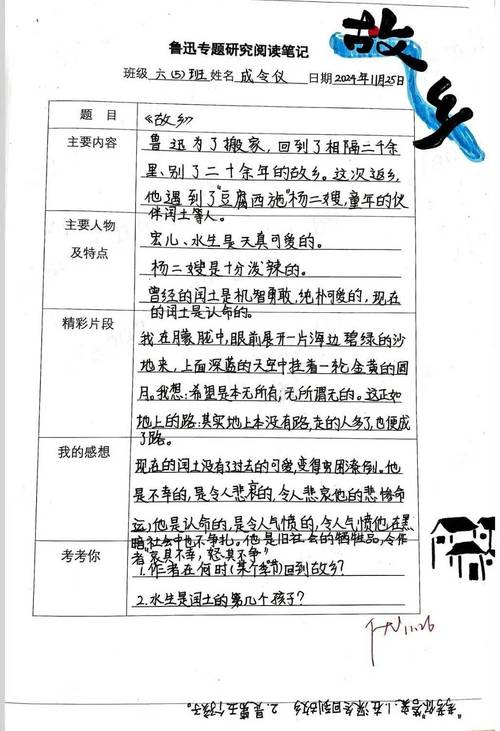 故乡
鲁迅专题研究阅读笔记
班级 六(5)班 姓名 成令仪 日期 2024年11月25日
题 目
《故乡》
主要内容
鲁迅为了搬家，回到了相隔二千余
里、别了二十余年的故乡。这次返乡，
他遇到了"豆腐西施"杨二嫂，童年的伙
伴闰土等人。
主要人物
及特点
宏儿、水生是天真可爱的。
杨二嫂是十分泼辣的。
曾经的闰土是机智勇敢，纯朴可爱的，现在
的闰土是认命的。
精彩片段
我在朦胧中，眼前展开一片海边碧绿的沙
地来，上面深蓝的天空中挂着一轮金黄的圆
月。我想：希望是本无所有，无所谓无的。这正如
地上的路：其实地上本没有路，走的人多了，也便成
了路。
我的感想
现在的闰土没有了过去的可爱，变得贫困潦倒。他
是不幸的，是令人悲哀的，令人悲哀他的悲惨命
运；他是认命的，是令人气愤的，令人气愤他在黑
暗社会中也不争扎。他是旧社会的牺牲品，令作
者"哀其不幸，怒其不争"
考考你
1.作者在何时(某个季节)回到故乡？
2.水生是闰土的第几个孩子？
11.26
"考考你"答案：1.在深冬回到故乡 2.是第五个孩子。